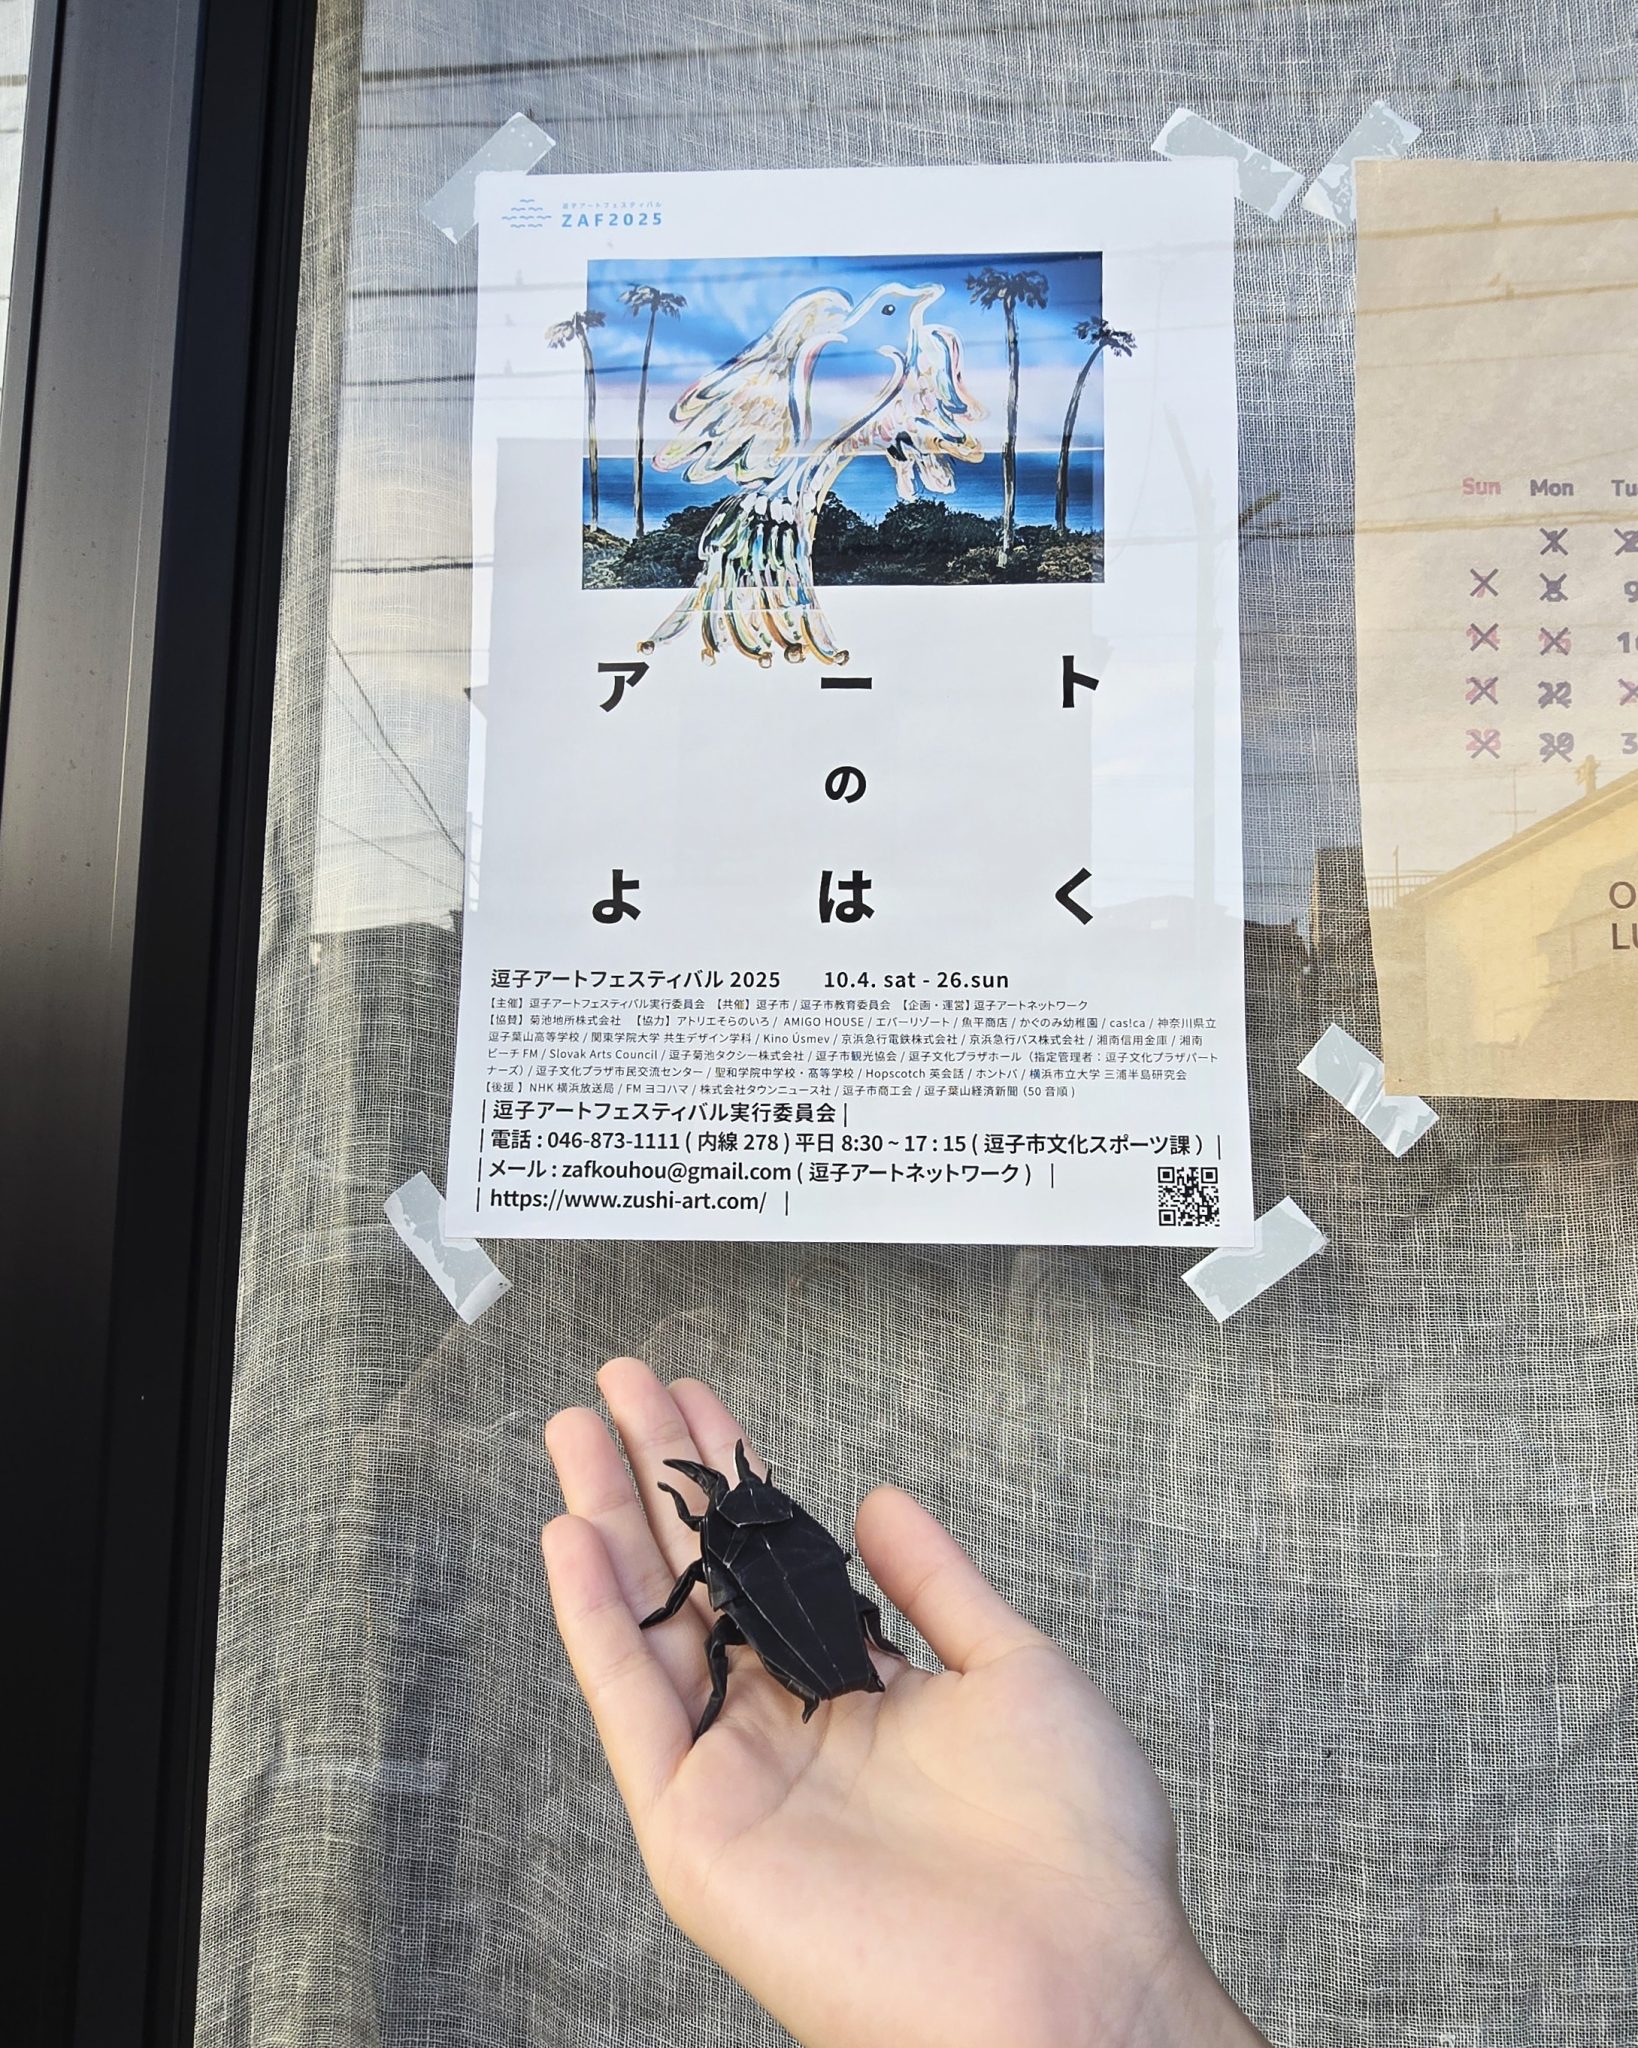 逗子アートフェスティバル
ZAF2025
アート
の
よはく
逗子アートフェスティバル 2025 10.4. sat - 26.sun
【主催】逗子アートフェスティバル実行委員会 【共催】逗子市 / 逗子市教育委員会 【企画・運営】逗子アートネットワーク
【協賛】菊池地所株式会社 【協力】アトリエそらのいろ / AMIGO HOUSE / エバーリゾート / 魚平商店 / かぐのみ幼稚園 / cas!ca / 神奈川県立
逗子葉山高等学校 / 関東学院大学 共生デザイン学科 / Kino Úsmev / 京浜急行電鉄株式会社 / 京浜急行バス株式会社 / 湘南信用金庫 / 湘南
ビーチ FM / Slovak Arts Council / 逗子菊池タクシー株式会社 / 逗子市観光協会 / 逗子文化プラザホール（指定管理者：逗子文化プラザパート
ナーズ）/ 逗子文化プラザ市民交流センター / 聖和学院中学校・高等学校 / Hopscotch 英会話 / ホントバ / 横浜市立大学 三浦半島研究会
【後援】NHK 横浜放送局 / FM ヨコハマ / 株式会社タウンニュース社 / 逗子市商工会 / 逗子葉山経済新聞 (50 音順)
| 逗子アートフェスティバル実行委員会 |
| 電話 : 046-873-1111 ( 内線 278 ) 平日 8:30 ~ 17 : 15 ( 逗子市文化スポーツ課 ) |
| メール : zafkouhou@gmail.com ( 逗子アートネットワーク ) |
| https://www.zushi-art.com/ |
Sun Mon Tu
1 2
7 8 9
14 15 1
21 22
28 29 3
O
LU